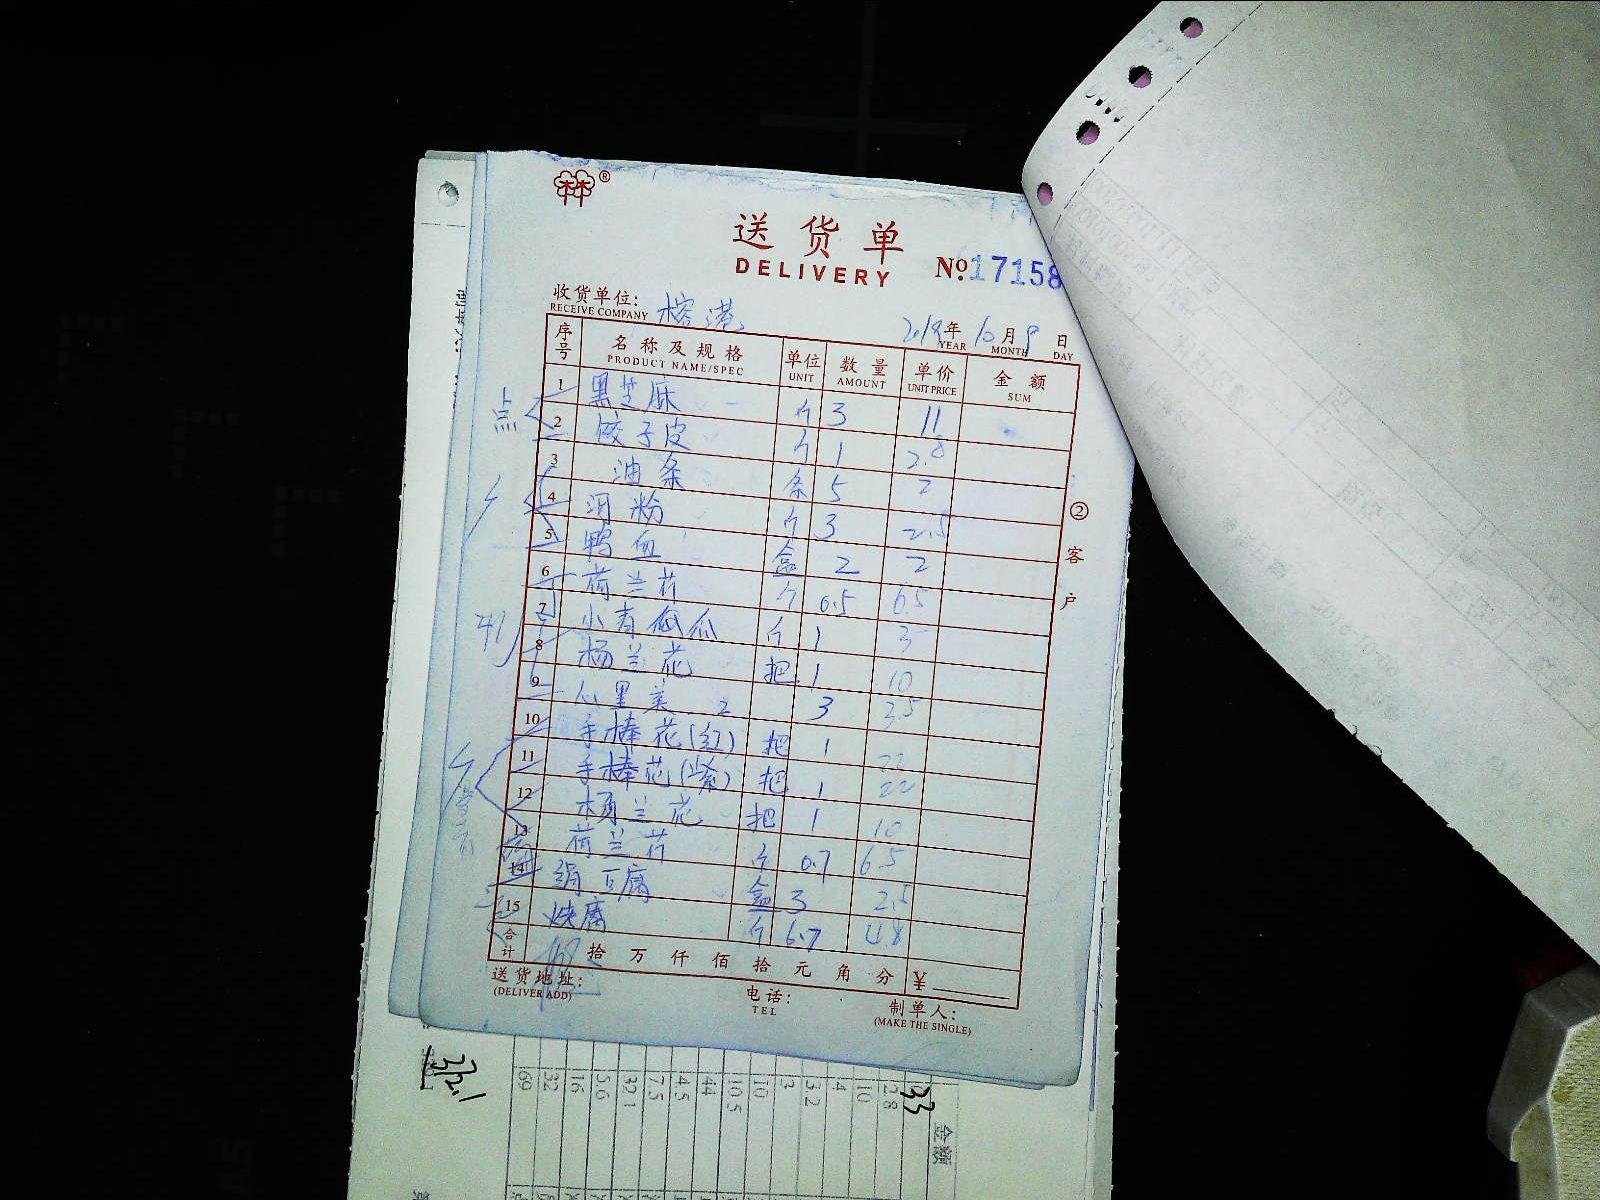 送货单
DELIVERY
No.17158
收货单位: 榕港
RECEIVE COMPANY
2019年10月9日
YEAR MONTH DAY
序号 名称及规格 单位 数量 单价 金额
PRODUCT NAME/SPEC UNIT AMOUNT UNIT PRICE SUM
点
1 黑芝麻 斤 3 11
2 饺子皮 斤 1 2.8
3 油条 条 5 2
4 河粉 斤 3 2.5
5 鸭血 盒 2 2
6 荷兰芹 斤 0.5 6.5
7 小青瓜 斤 1 3
8 杨兰花 把 1 10
9 心里美 2 3 3.5
10 手棒花(红) 把 1 22
11 手棒花(紫) 把 1 22
12 杨兰花 把 1 10
13 荷兰芹 斤 0.7 6.5
14 绢豆腐 盒 3 2.5
15 快腐 斤 6.7 4.8
合计 拾 万 仟 佰 拾 元 角 分 ¥
送货地址:
(DELIVER ADD)
电话:
TEL
制单人:
(MAKE THE SINGLE)
② 客户
金额
33
2.8
10
4
3.2
3
10
10.5
44
4.5
7.5
32.1
5.6
16
32
69